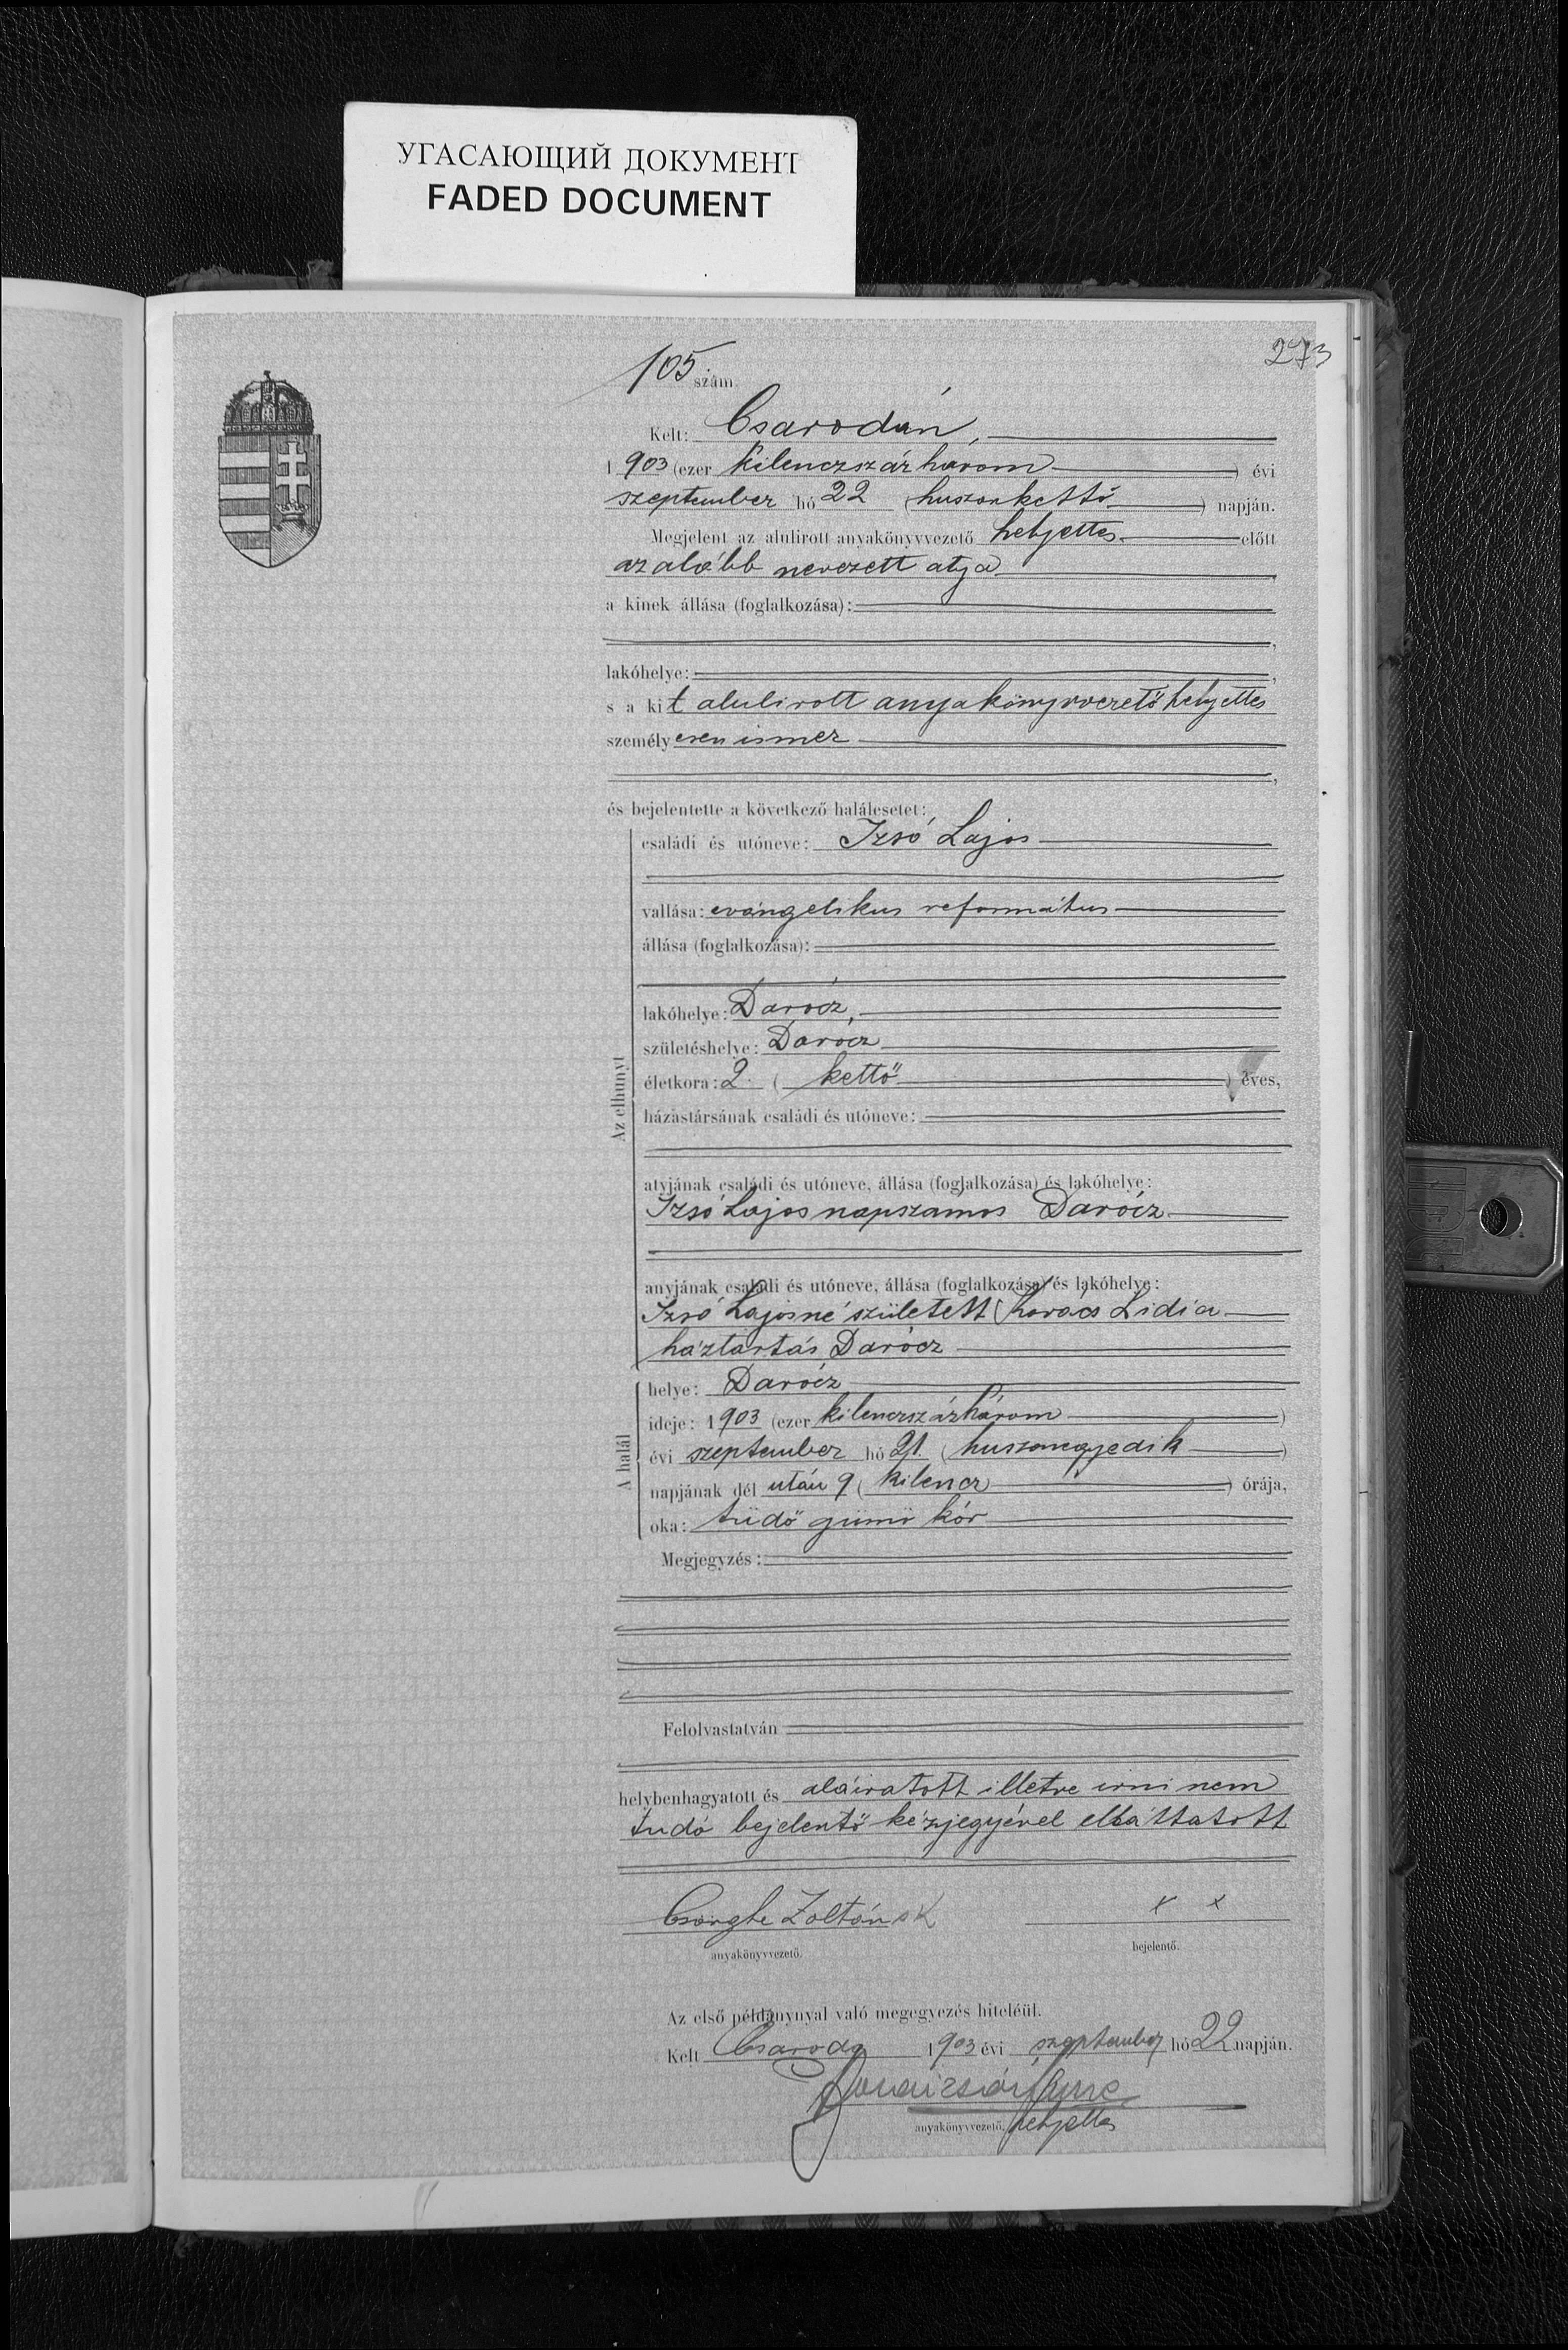 УГАСАЮЩИЙ ДОКУМЕНТ
FADED DOCUMENT
273
105 szám.
Kelt: Csarodán,
1903 (ezer kilenczszázhárom) évi
szeptember hó 22 (huszonkettő) napján.
Megjelent az alulirott anyakönyvvezető helyettes előtt
az alább nevezett atyja
a kinek állása (foglalkozása):
lakóhelye:
s a kit alulirott anyakönyvvezető helyettes
személyesen ismer
és bejelentette a következő halálesetet:
Az elhunyt
családi és utóneve: Izsó Lajos
vallása: evángelikus református
állása (foglalkozása):
lakóhelye: Darócz,
születéshelye: Darócz
életkora: 2 (kettő) éves,
házastársának családi és utóneve:
atyjának családi és utóneve, állása (foglalkozása) és lakóhelye:
Izsó Lajos napszámos Darócz
anyjának családi és utóneve, állása (foglalkozása) és lakóhelye:
Izsó Lajosné született Kovács Lidia
háztartás Darócz
A halál
helye: Darócz
ideje: 1903 (ezer kilenczszázhárom)
évi szeptember hó 21. (huszonegyedik)
napjának dél után 9 (kilencz) órája,
oka: tüdő gümö kór
Megjegyzés:
Felolvastatván
helybenhagyatott és aláiratott illetve irni nem
tudó bejelentő kézjegyével elláttatott
Zoltán sk x x
anyakönyvvezető. bejelentő.
Az első példánynyal való megegyezés hiteléül.
Kelt Csaroda 1903 évi szeptember hó 22 napján.
Imre
anyakönyvvezető, helyettes